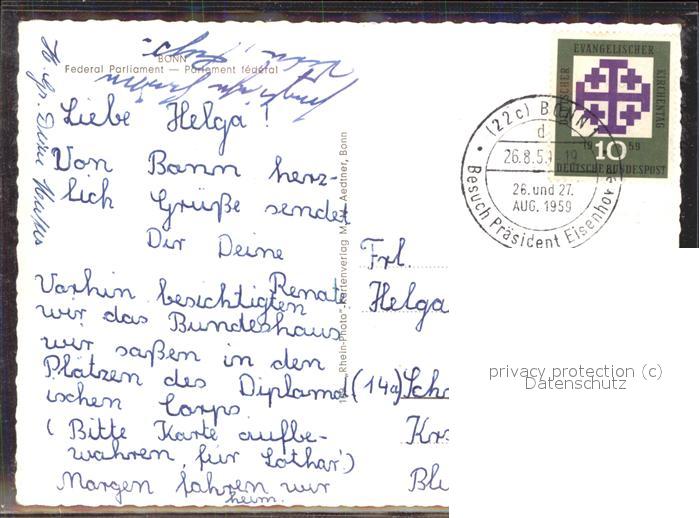 BONN
Federal Parliament — Parlement fédéral
Liebe Helga!
Von Bonn herz-
lich Grüße sendet
Dir Deine
Renate
Vorhin besichtigten
wir das Bundeshaus
wir saßen in den
Plätzen des Diplomat
ischen Corps.
(Bitte Karte aufbe-
wahren für Lothar!)
Morgen fahren wir
heim.
"Rhein-Photo"-Kartenverlag M. W. Aedtner, Bonn
DEUTSCHER
EVANGELISCHER
KIRCHENTAG
1959
10
DEUTSCHE BUNDESPOST
(22c) BONN 1
d
26.8.59. 19
26. und 27.
AUG. 1959
Besuch Präsident Eisenhower
Frl.
Helga
(14a) Sch
Krs
Bl
privacy protection (c)
Datenschutz